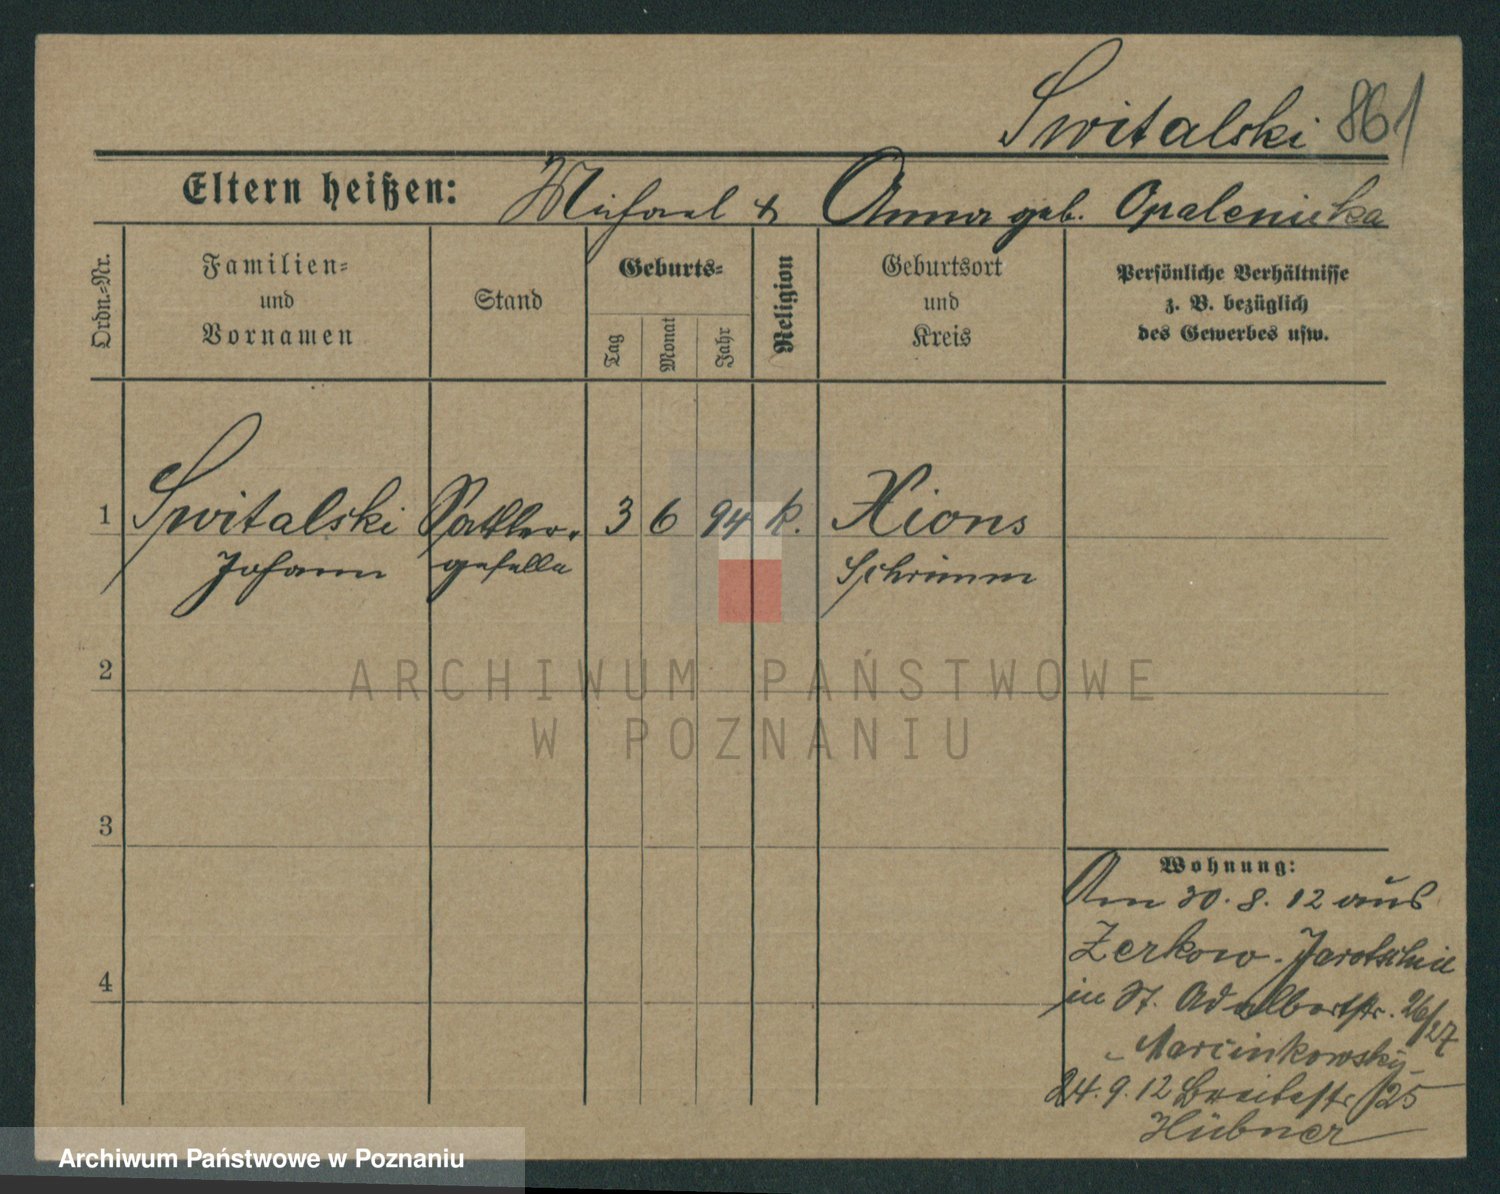 Switalski 861
Eltern heißen: Michael & Anna geb. Opalenicka
Ordn.-Nr.
Familien-
und
Vornamen
Stand
Geburts-
Tag
Monat
Jahr
Religion
Geburtsort
und
Kreis
Persönliche Verhältnisse
z. B. bezüglich
des Gewerbes usw.
1 Switalski Sattler- 3 6 94 k. Xions
Johann geselle Schrimm
2
ARCHIWUM PAŃSTWOWE
W POZNANIU
3
Wohnung:
Am 30. 8. 12 aus
Zerkow - Jarotschin
4
in St. Adalbertstr. 26/27
Marcinkowski
24. 9. 12 Breitestr. 25
Hübner
Archiwum Państwowe w Poznaniu